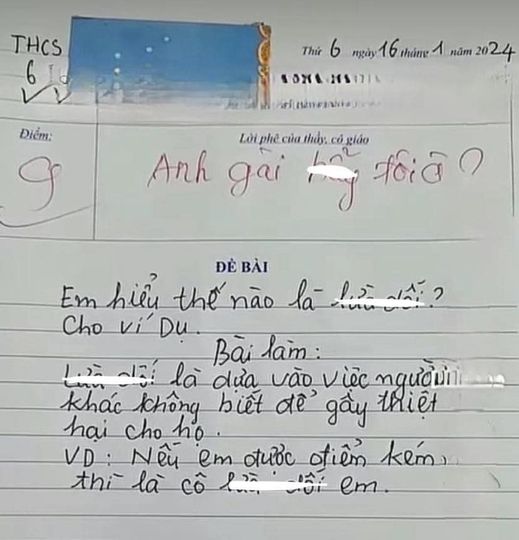 THCS
6
Thứ 6 ngày 16 tháng 1 năm 2024
Điểm:
Lời phê của thầy, cô giáo
9
Anh gài bẫy tôi à?
ĐỀ BÀI
Em hiểu thế nào là lừa dối?
Cho ví Dụ.
Bài làm:
Lừa dối là dựa vào việc người
khác không biết để gây thiệt
hại cho họ.
VD: Nếu em được điểm kém,
thì là cô lừa dối em.